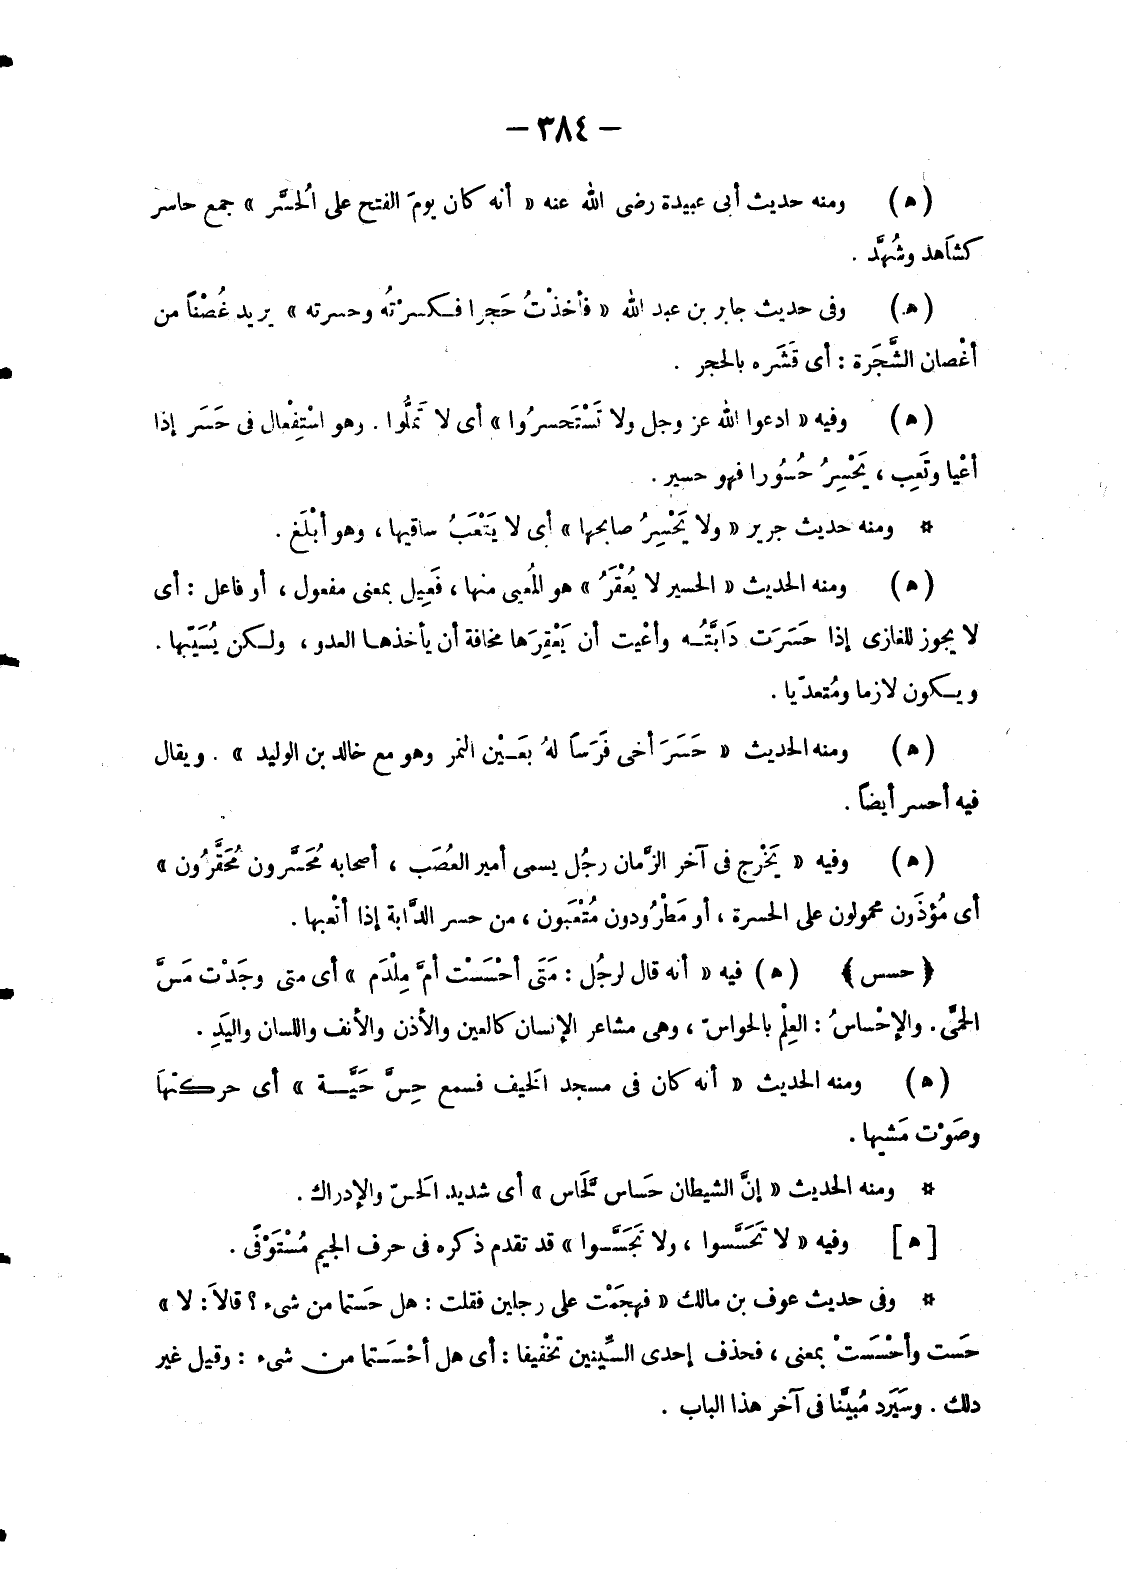 — ٣٨٤ —
(ه) ومنه حديث أبى عبيدة رضى الله عنه « أنه كان يومَ الفتح على الُحسَّر » جمع حاسر
كشاَهد وشُهَّد .
(ه) وفى حديث جابر بن عبد الله « فأخذْتُ حَجرا فكسرْتُه وحسرته » يريد غُصْناً من
أغْصان الشَّجَرة : أى قَشَره بالحجر .
(ه) وفيه « ادعوا الله عز وجل ولا تَسْتَحسرُوا » أى لا تَملُّوا . وهو اسْتِفْعال فى حَسَر إذا
أعْيا وتَعِب ، يَحْسِرُ حُسُورا فهو حسير .
* ومنه حديث جرير « ولا يَحْسِرُ صابحها » أى لا يَتْعَبُ ساقيها ، وهو أبْلَغ .
(ه) ومنه الحديث « الحسير لا يُعْقَرُ » هو المُعيى منها ، فَعِيل بمعنى مفعول ، أو فاعل : أى
لا يجوز للغازى إذا حَسَرَت دَابَّتُه وأعْيت أن يَعْقِرَها مخافة أن يأخذها العدو ، ولكن يُسَيِّبها .
ويكون لازما ومُتعدّيا .
(ه) ومنه الحديث « حَسَرَ أخى فَرَساً لهُ بعَيْن النمر وهو مع خالد بن الوليد » . ويقال
فيه أحسر أيضاً .
(ه) وفيه « يَخْرج فى آخر الزَّمان رجُل يسمى أمير العُصَب ، أصحابه مُحَسَّرون مُحَقَّرُون »
أى مُؤذَون محمولون على الحسرة ، أو مَطْرُودون مُتْعَبون ، من حسر الدَّابة إذا أتْعبها .
﴿ حسس ﴾ (ه) فيه « أنه قال لرجُل : مَتَى أحْسَسْت أمَّ مِلْدَم » أى متى وجَدْت مَسَّ
الحمَّى . والإحْساسُ : العِلْم بالحواسّ ، وهى مشاعر الإنسان كالعين والأذن والأنف واللسان واليَدِ .
(ه) ومنه الحديث « أنه كان فى مسجد الَخيف فسمع حِسَّ حَيَّة » أى حركتهاَ
وصَوْت مَشيها .
* ومنه الحديث « إنَّ الشيطان حَساس لَحَّاس » أى شديد الَحسّ والإدراك .
[ه] وفيه « لا تَحَسَّسوا ، ولا تَجَسَّسوا » قد تقدم ذكره فى حرف الجيم مُسْتَوْفًى .
* وفى حديث عوف بن مالك « فهجَمْت على رجلين فقلت : هل حَستما من شىء ؟ قالاَ : لا »
حَست وأحْسَسَتْ بمعنى ، فحذف إحدى السِّينين تخْفيفا : أى هل أحْسَستما من شىء : وقيل غير
ذلك . وسَيَرد مُبيَّنا فى آخر هذا الباب .